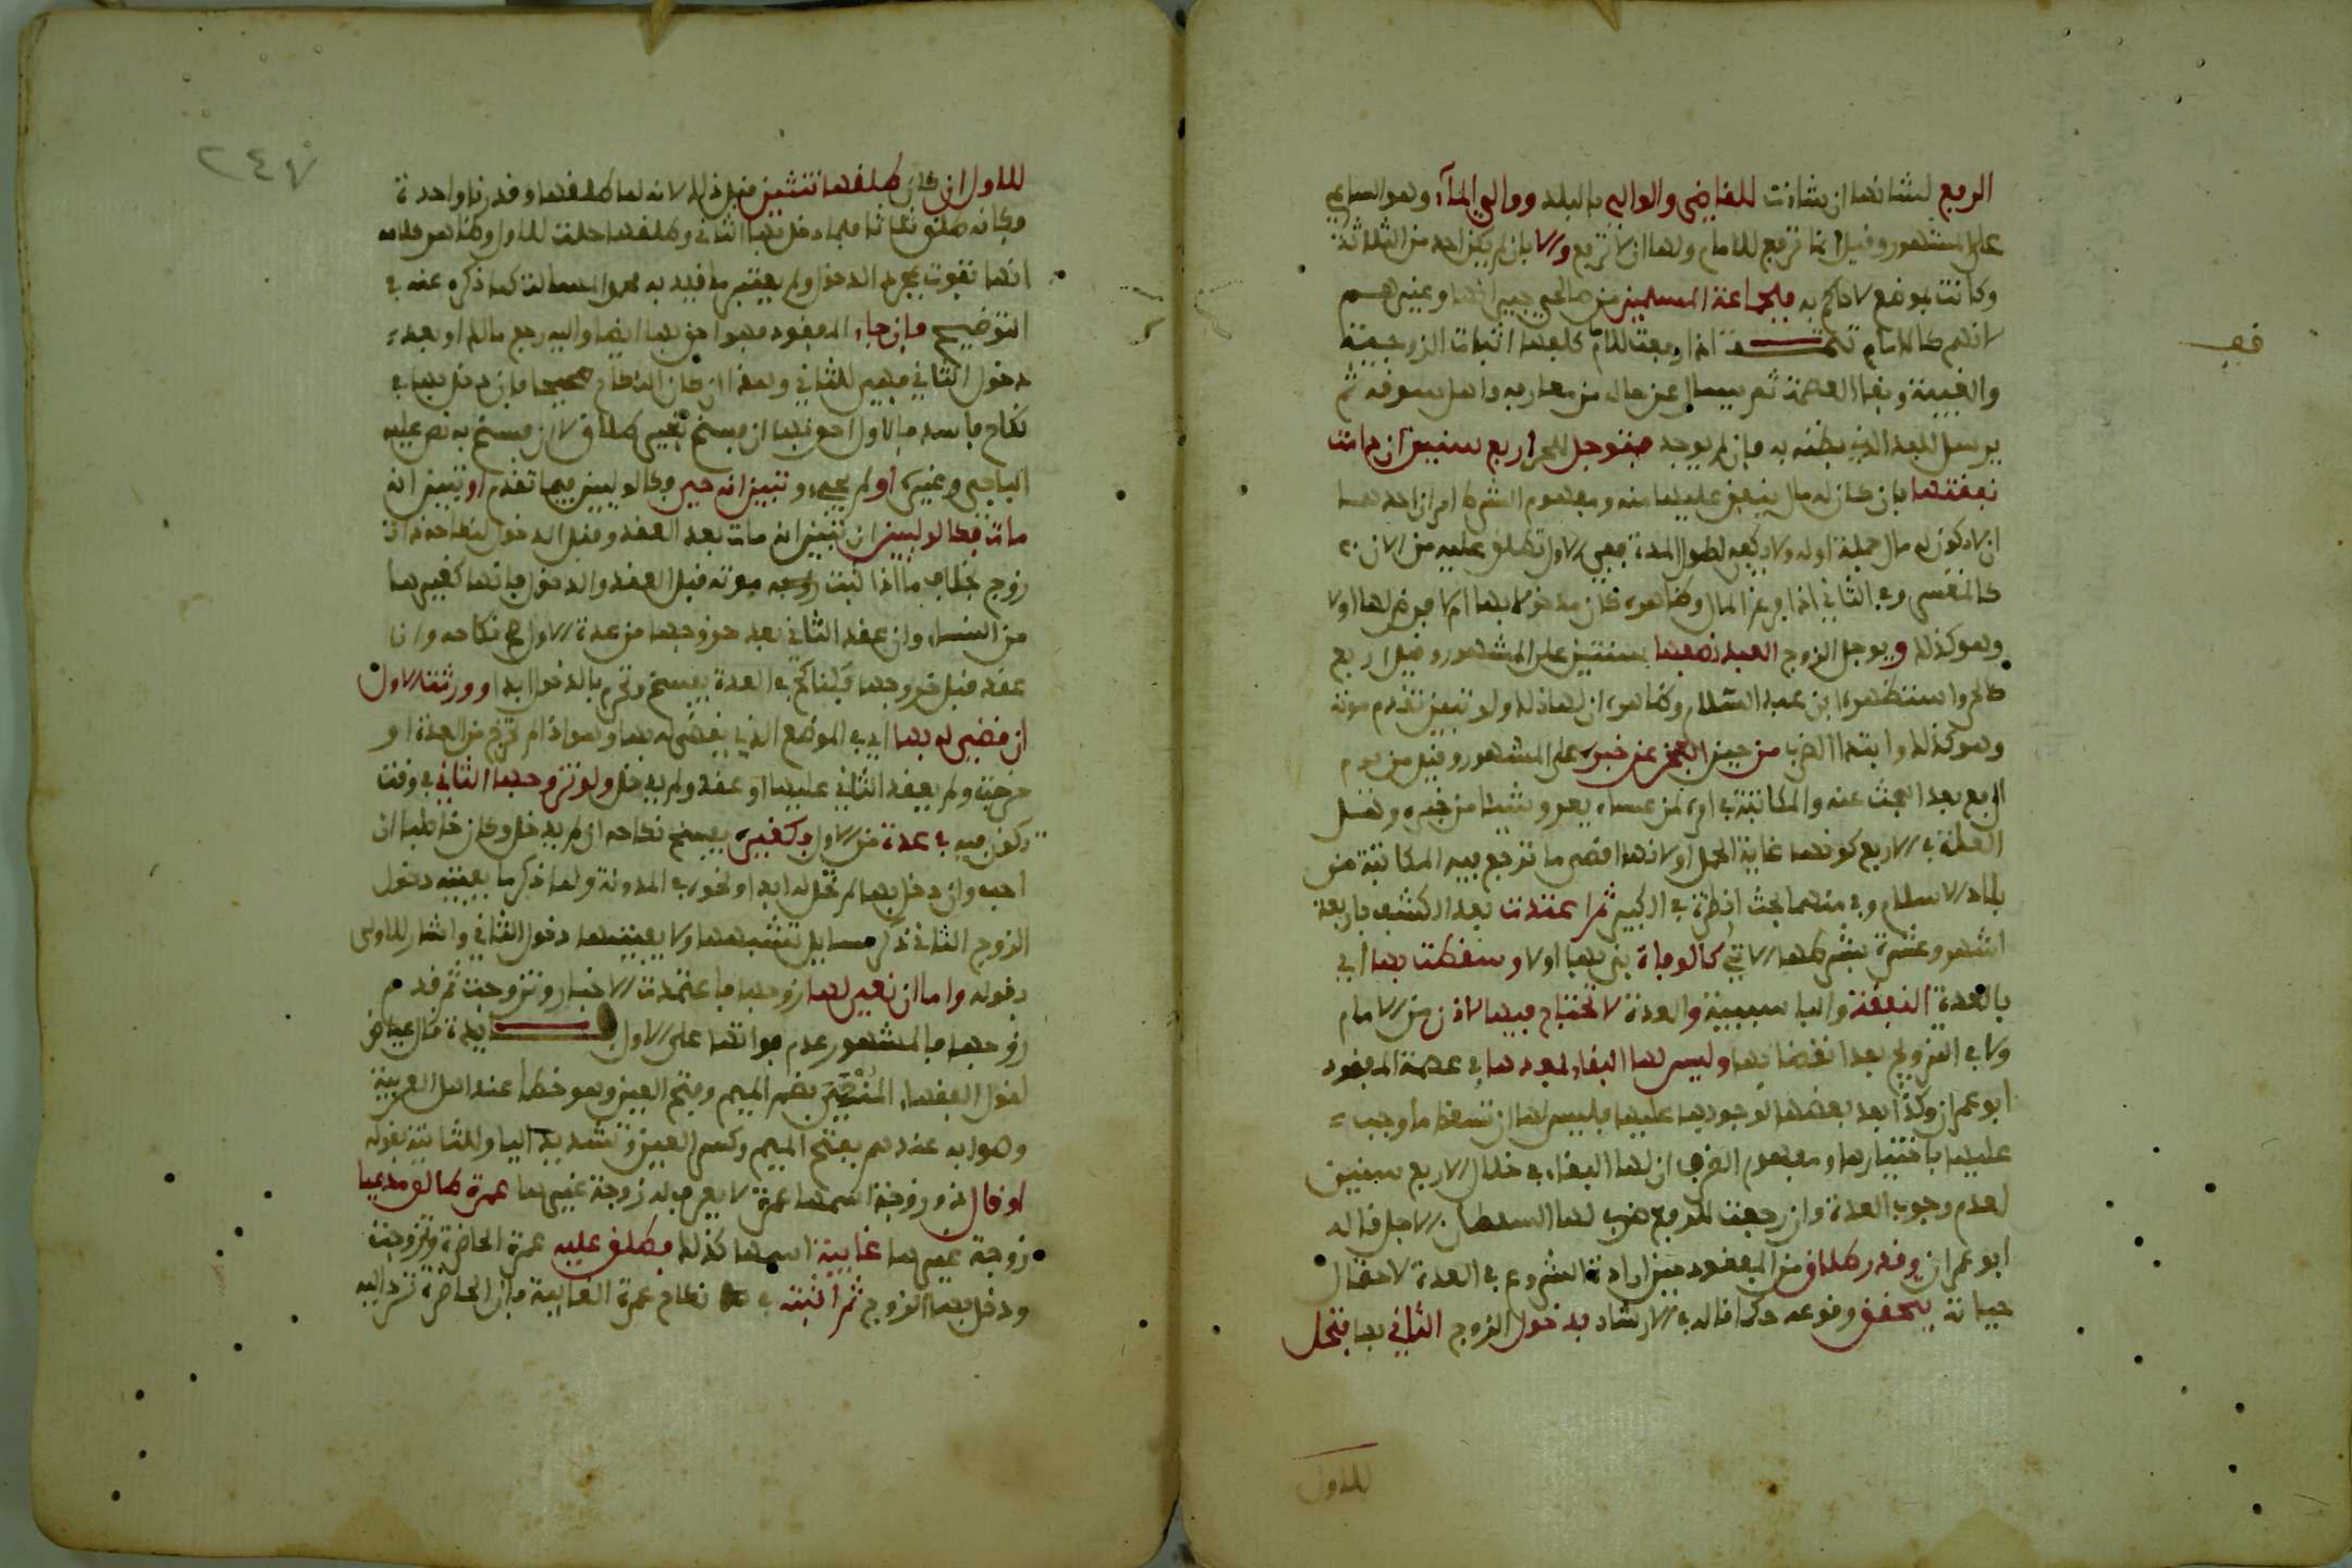 الرفع لشانها ان شاءت للقاضي والوالي بالبلد ووالي الماء وهو الساعي
على المشهور وقيل انما ترفع للامام ولها ان لا ترفع والا بان لم يكن احد من الثلاثة
وكانت بموضع لا حاكم به فلجماعة المسلمين من صالحي جيرانها وغيرهم
لانهم كالامام تتمة اذا رفعت للامام كلفها اثبات الزوجية
والغيبة وبقاء العصمة ثم يسال عن حاله من معارفه واهل سوقه ثم
يرسل للبلد الذي يظنه به فان لم يوجد فتوجل للحر اربع سنين ان دامت
نفقتها بان كان له مال ينفق عليها منه ومفهوم الشرط امران احدهما
ان لا يكون له مال جملة او له ولا يكفي لطول المدة ففي الاول تطلق عليه من الان
كالمعسر وفي الثاني اذا فرغ المال وظاهره كان مدخولا بها ام لا فرض لها او لا
وهو كذلك ويوجل الزوج العبد نصفها سنتين على المشهور وقيل اربع
كالحر واستظهره ابن عبد السلام وظاهره ان لها ذلك ولو تبين تقدم موته
وهو كذلك وابتداء الضرب من حين العجز عن خبره على المشهور وقيل من يوم
الرفع بعد البحث عنه والمكاتبة في امره لمن عساه يعرف شيئا من خبره وهل
العلة في الاربع كونها غاية الحمل او لانها اقصى ما ترجع فيه المكاتبة من
بلاد الاسلام وفي منهما بحث انظره في الكبير ثم اعتدت بعد الكشف باربعة
اشهر وعشرة بشرطها الاتي كالوفاة بنى بها او لا وسقطت بها اي
بالعدة النفقة والباء سببية والعدة لا تحتاج فيها لاذن من الامام
ولا في التزويج بعد انقضائها وليس لها البقاء بعدها في عصمة المفقود
ابو عمران وكذا بعد بعضها لوجوبها عليها فليس لها ان تسقط ما وجب
عليها باختيارها ومفهوم الظرف ان لها البقاء في خلال الاربع سنين
لعدم وجوب العدة وان رجعت للرفع ضرب لها السلطان الاجل قاله
ابو عمران وقدر طلاق من المفقود حين ارادة الشروع في العدة لاحتمال
حياته يتحقق وقوعه كما قاله في الارشاد بدخول الزوج الثاني بها فتحل
للاول
فف
٢٤٧
للاول ان كان طلقها ثنتين قبل ذلك لانه لما طلقها وقدرنا واحدة
فكانه طلق ثلاثا فلما دخل بها الثاني وطلقها حلت للاول وظاهر كلامه
انها تفوت بمجرد الدخول ولم يعتبر ما قيد به المسالة كما ذكره عنه في
التوضيح فان جاء المفقود فهو احق بها ايضا واليه رجع مالك او بعد
دخول الثاني فهي للثاني وهذا ان كان النكاح صحيحا فان دخل بها في
نكاح فاسد فالاول احق بها ان فسخ بغير طلاق لا ان فسخ به نص عليه
الباجي وغيره او لم يجيء وتبين انه حي فكالوليين فيما تقدم او تبين انه
مات فكالوليين ان تبين انه مات بعد العقد وقبل الدخول لنها حينئذ ذات
زوج بخلاف ما اذا ثبت موته قبل العقد والدخول فانها كغيرها
من النساء وان عقد الثاني بعد خروجها من عدة الاول صح نكاحه وان
عقد قبل خروجها فكناكح في العدة يفسخ وتحرم بالدخول ابدا وورثت الاول
ان قضي له بها اي في الموضع الذي يقضى له بها وهو اذا لم تخرج من العدة او
خرجت ولم يعقد الثاني عليها او عقد ولم يدخل ولو تزوجها الثاني في وقت
تكون فيه في عدة من الاول فكغيره يفسخ نكاحه ان لم يدخل وكان خاطبا ان
احب وان دخل بها لم تحل له ابدا ونحوه في المدونة ولما ذكر ما يفيته دخول
الزوج الثاني ذكر مسايل تشبهها ولا يفيتها دخول الثاني واشار للاولى
بقوله واما ان نعي لها زوجها فاعتمدت الاخبار وتزوجت ثم قدم
زوجها فالمشهور عدم فواتها على الاول فايدة قال عياض
لقول الفقهاء المنعى بضم الميم وفتح العين وهو خطا عند اهل العربية
وصوابه عندهم بفتح الميم وكسر العين وتشديد الياء وللثانية بقوله
او قال ذو زوجة اسمها عمرة لا يعرف له زوجة غيرها عمرة طالق مدعيا
زوجة غيرها غايبة اسمها كذلك فطلق عليه عمرة الحاضرة وتزوجت
ودخل بها الزوج ثم اثبته في نكاح عمرة الغايبة فان الحاضرة ترد اليه